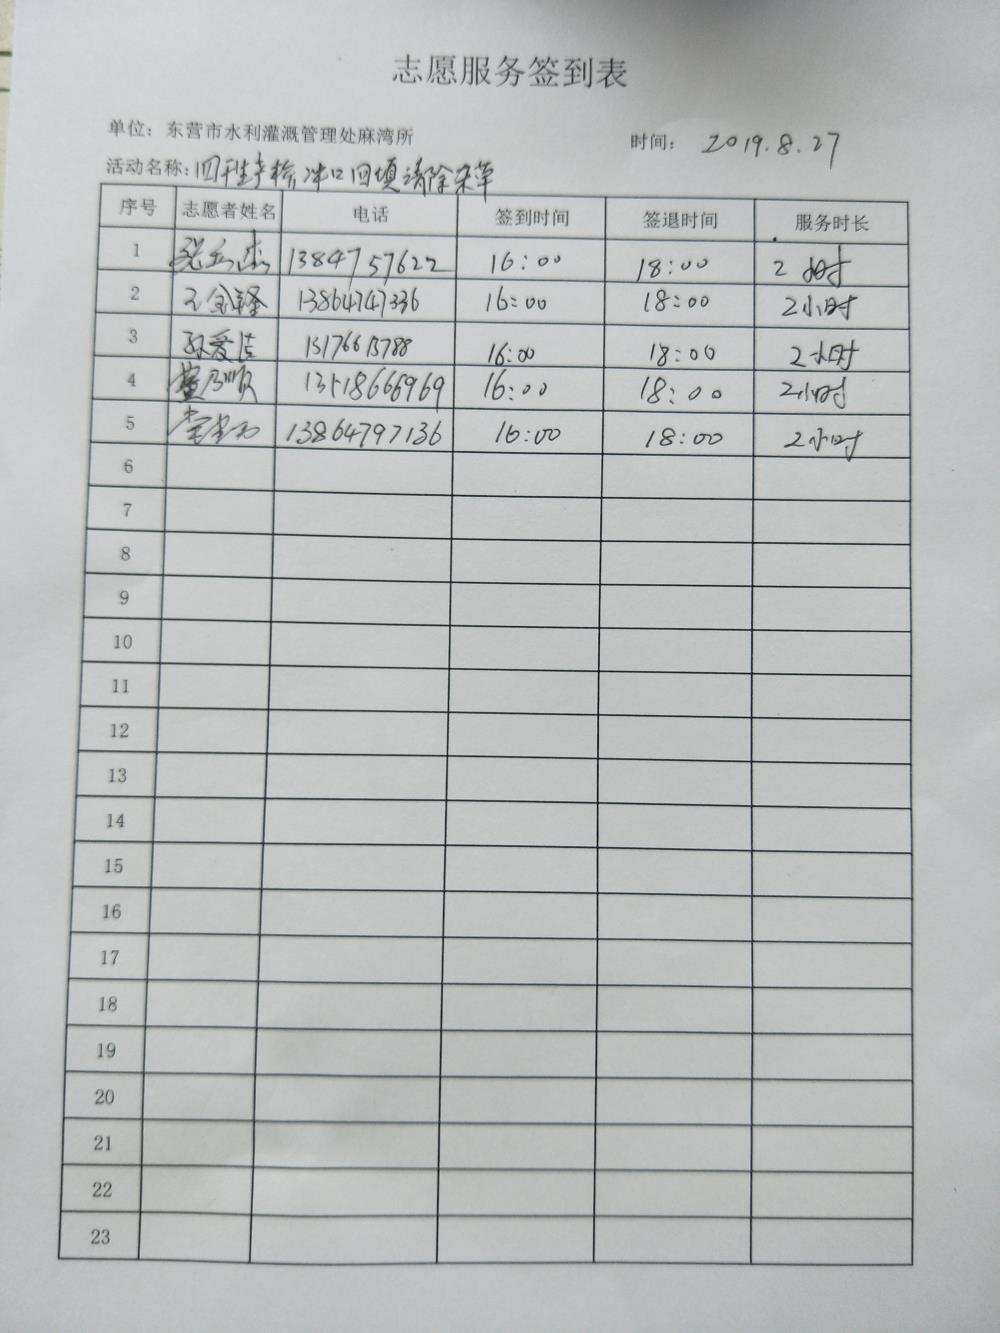 志愿服务签到表
单位：东营市水利灌溉管理处麻湾所 时间： 2019.8.27
活动名称： 四干生产桥冲口回填清除杂草
序号 志愿者姓名 电话 签到时间 签退时间 服务时长
1 13847757622 16:00 18:00 2小时
2 王金铎 13864747336 16:00 18:00 2小时
3 孙爱洁 15176615788 16:00 18:00 2小时
4 董乃顺 13518666969 16:00 18:00 2小时
5 13864797136 16:00 18:00 2小时
6
7
8
9
10
11
12
13
14
15
16
17
18
19
20
21
22
23